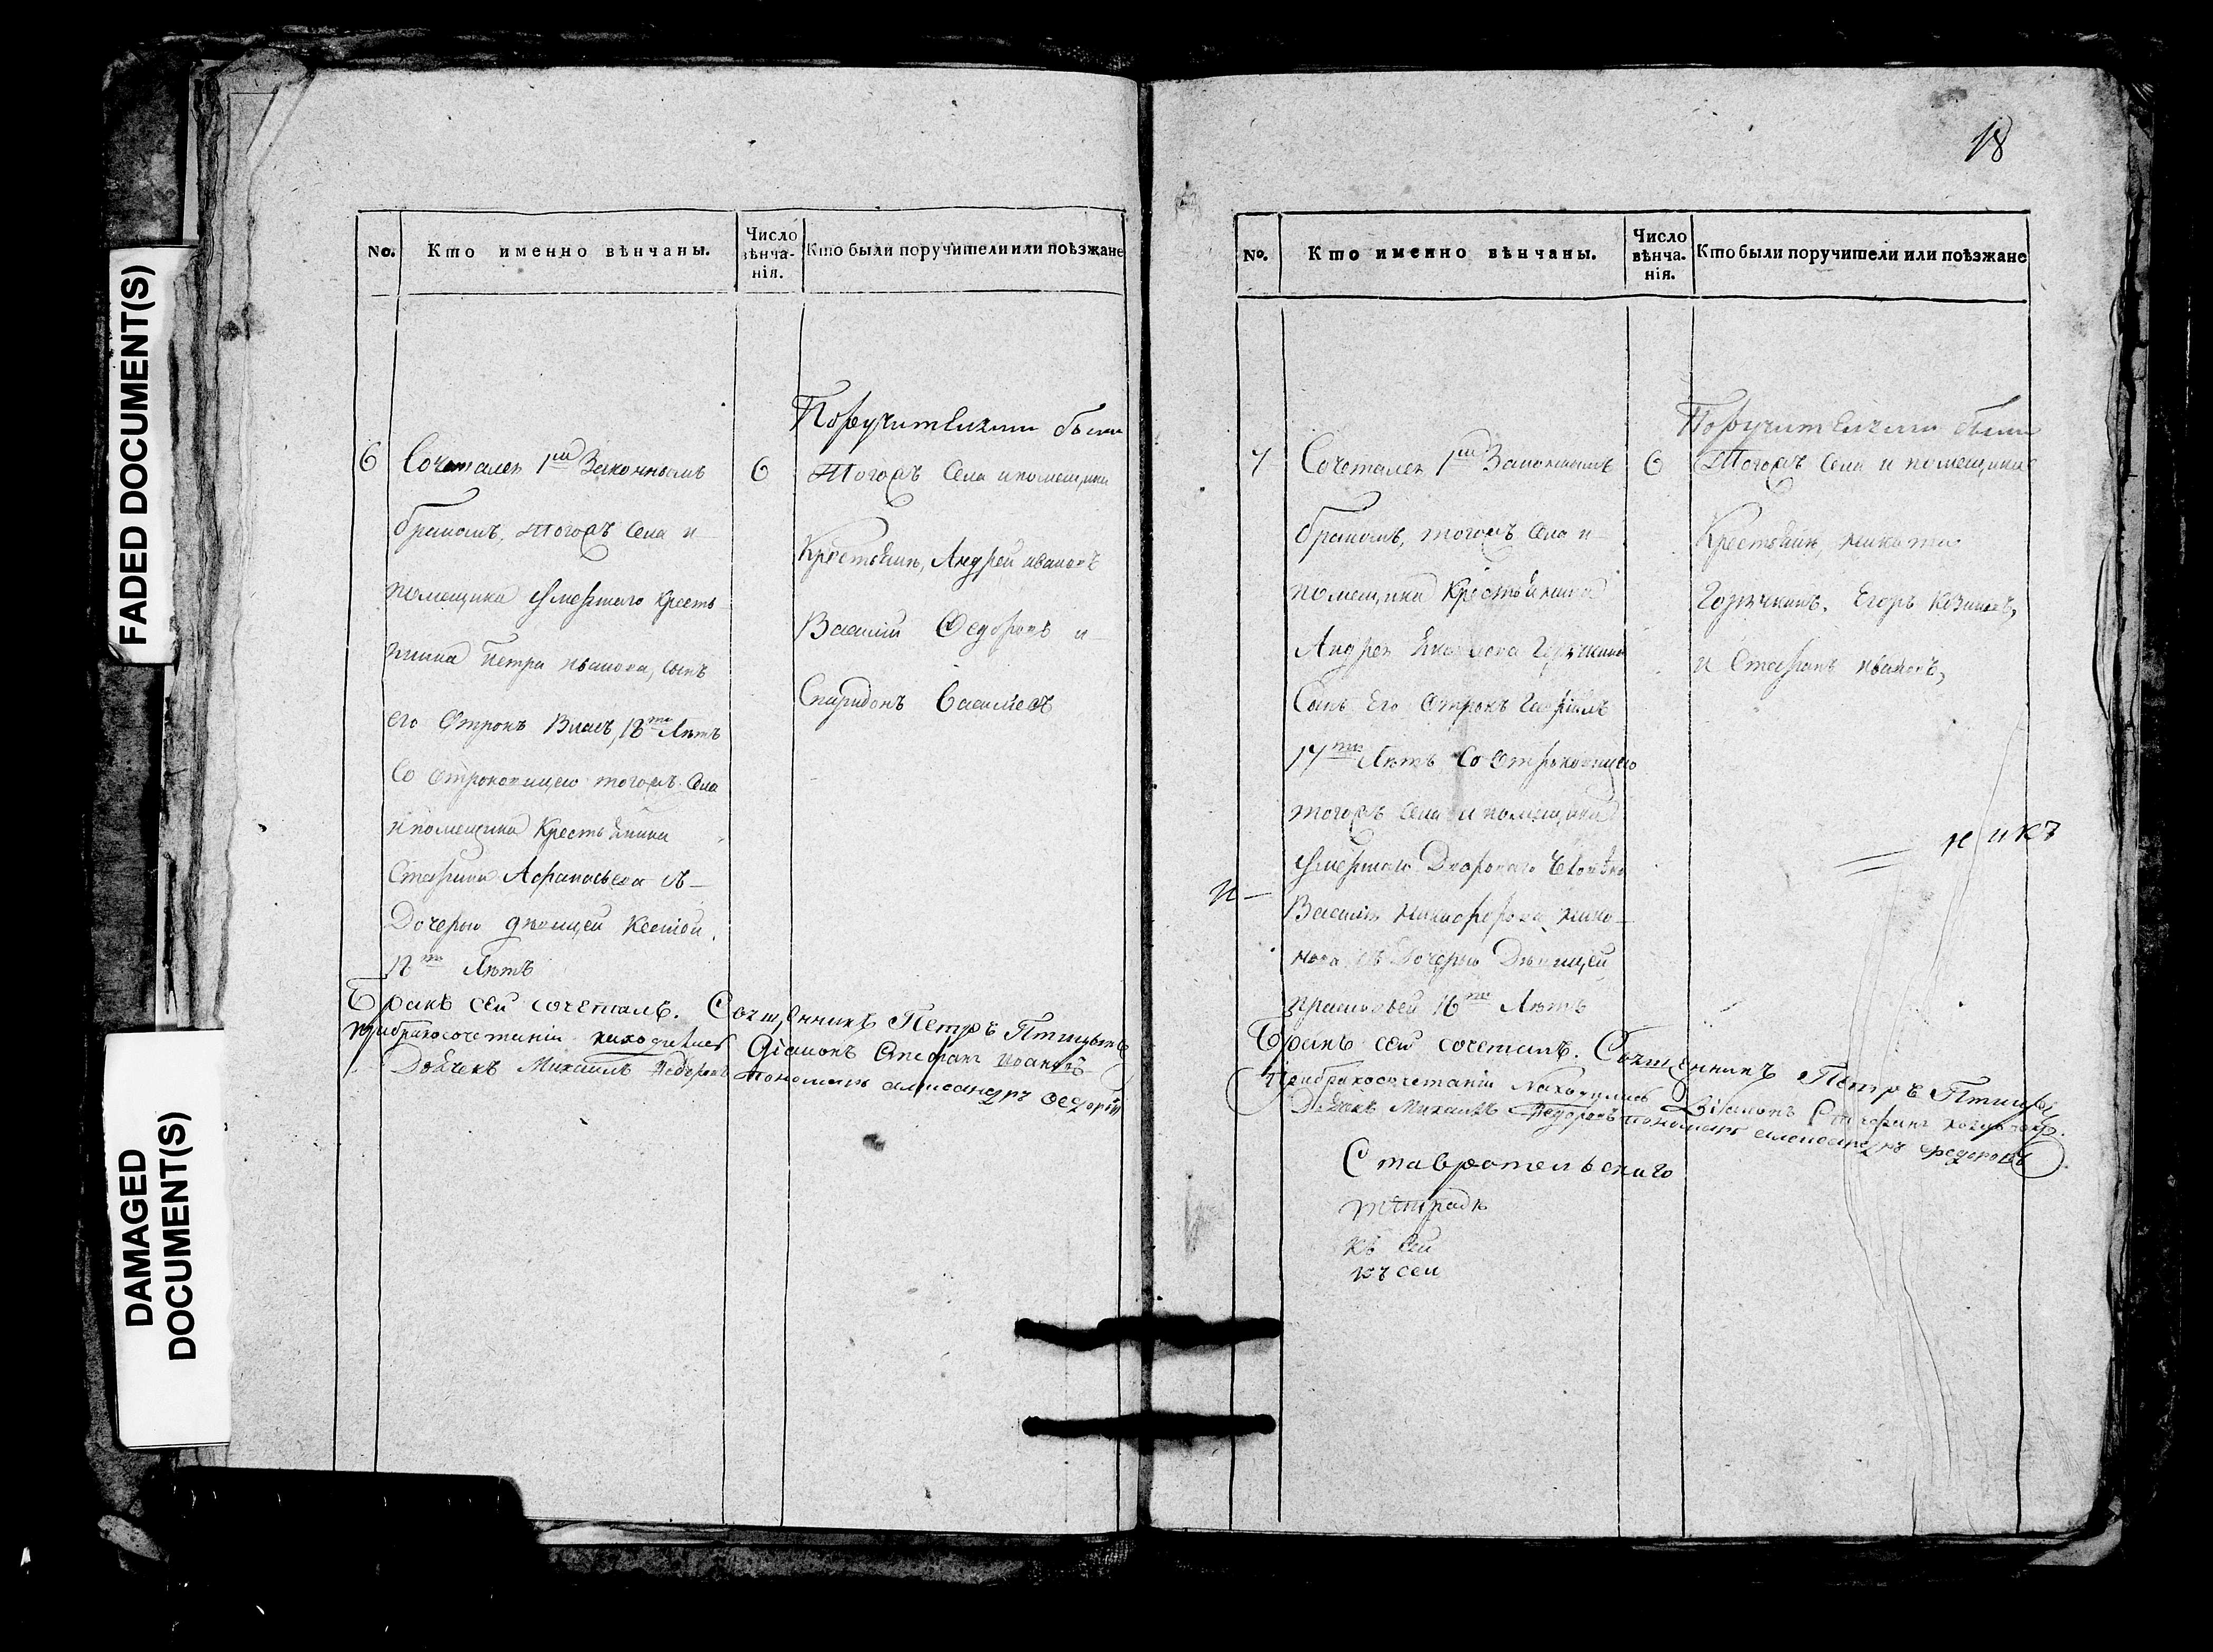 FADED DOCUMENT(S)
DAMAGED
DOCUMENT(S)
No.
Кто именно вѣнчаны.
Число
вѣнча-
нія.
Кто были поручители или поѣзжане
Поручителями были
6 Сочетанъ 1мъ Законнымъ
бракомъ, тогожъ Села и
помещика умершаго Кресть
янина Петра иванова, сынъ
его Отрокъ Власъ, 18ти Лѣтъ
Со отроковицею тогожъ Села
и помещика Крестьянина
Афанасьева съ
Дочерью девицей Ксенией
18ти Лѣтъ
6
тогожъ Села и помещика
Крестьяне, Андрей ивановъ
Василий Федоровъ и
Спиридонъ Васильевъ
Бракъ сей сочеталъ. Священникъ Петръ Птицынъ
при бракосочетании находились Діаконъ Стефанъ
Дьячекъ Михаилъ Федоровъ пономарь александръ Федоровъ
18
No.
Кто именно вѣнчаны.
Число
вѣнча-
нія.
Кто были поручители или поѣзжане
Поручителями были
7 Сочетанъ 1мъ Законнымъ
бракомъ, тогожъ Села и
помещика Крестьянина
Андрея
Сынъ Его Отрокъ Гавріилъ
17ти Лѣтъ Со Отроковицею
тогожъ Села и помещика
умершаго Дворового Человека
Василия Никифорова
съ Дочерью Девицей
Прасковьей 16ти Лѣтъ
6
тогожъ Села и помещика
Крестьяне, Никита
Егоръ
и Стефанъ ивановъ,
Бракъ сей сочеталъ. Священникъ Петръ Птицынъ
при бракосочетании находились Діаконъ Стефанъ
Дьячекъ Михаилъ Федоровъ пономарь александръ федоровъ
Ставропольскаго
тетрадь
къ сей
къ сей